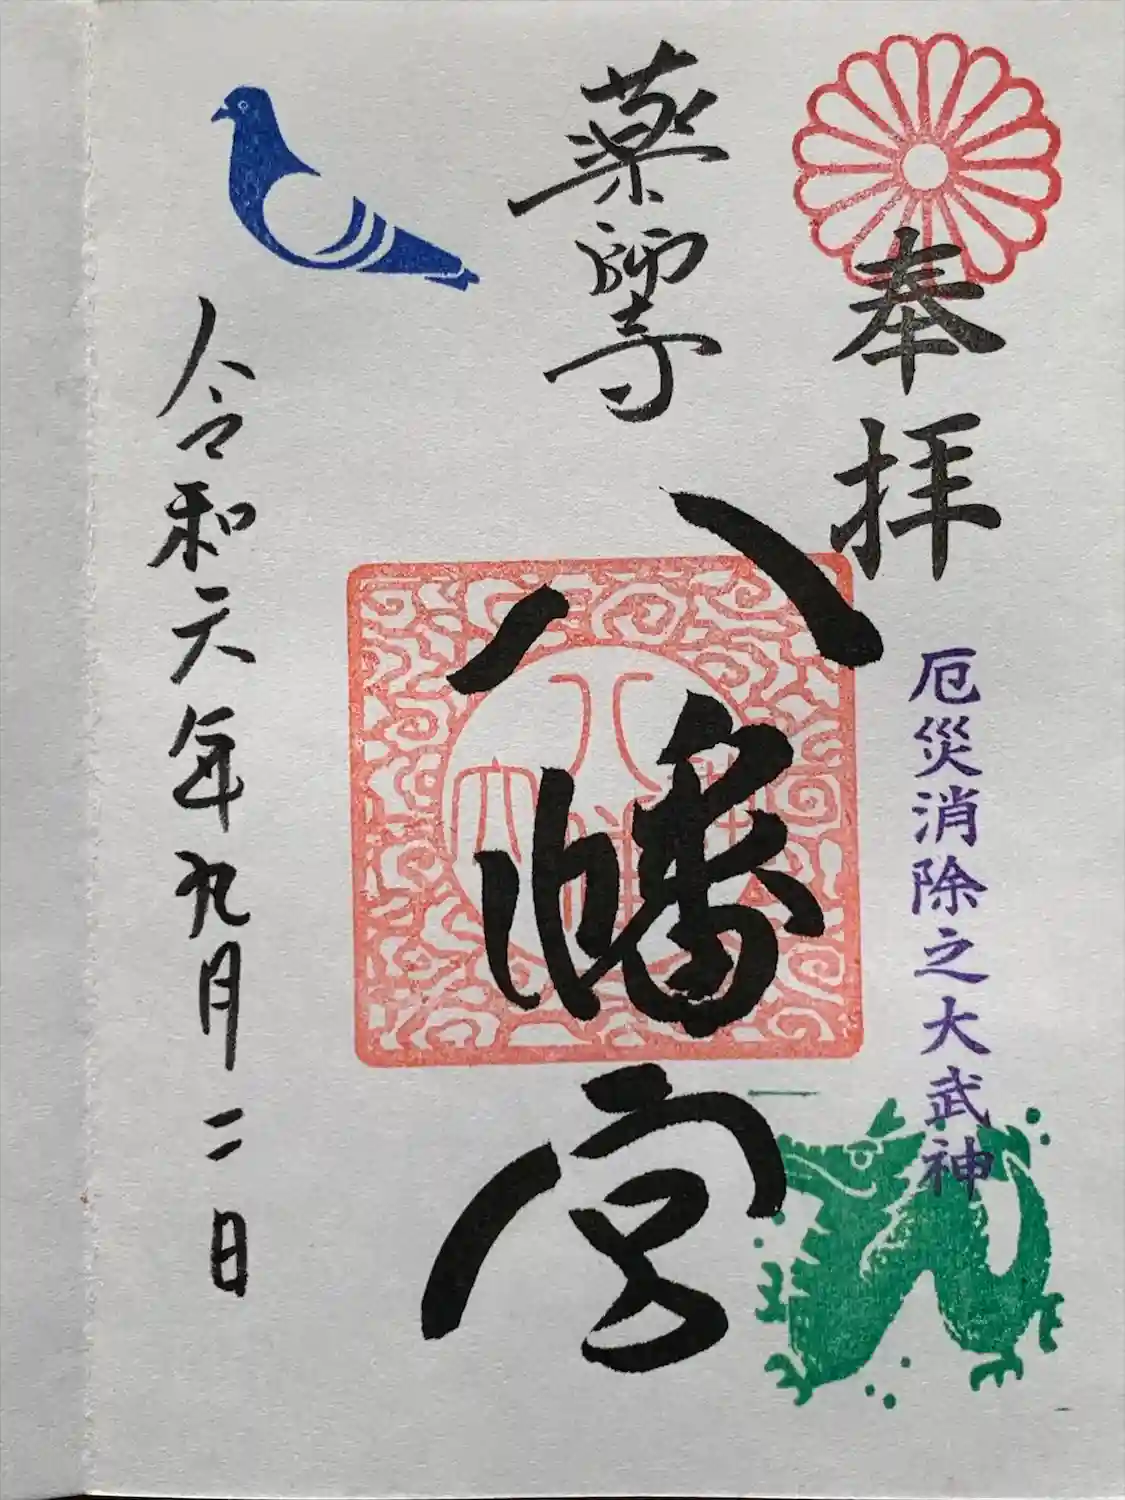 奉拝
厄災消除之大武神
薬師寺
八幡宮
令和元年九月二日